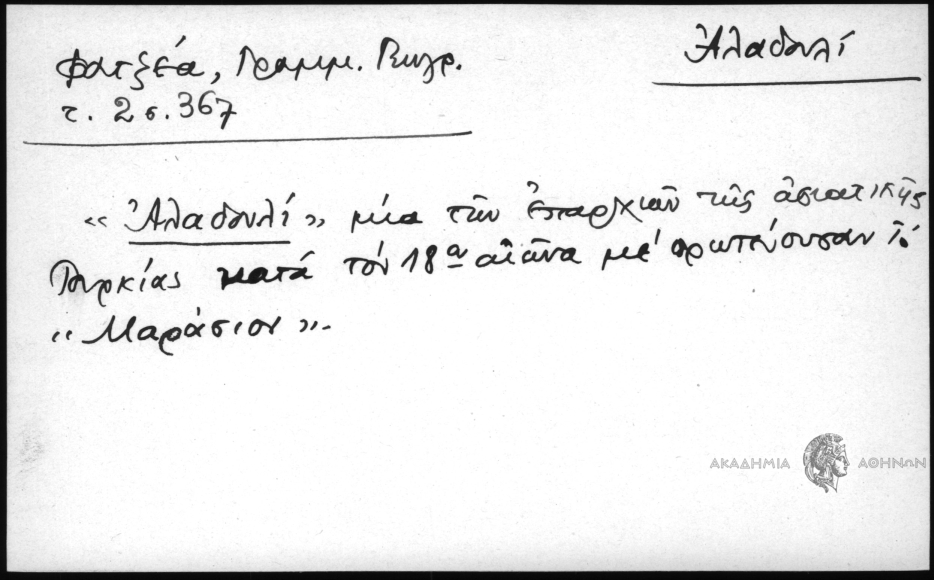 Φατζέα, Γραμμ. Γεωγρ.
τ. 2 σ. 367
Ἀλαδουλί
«Ἀλαδουλί» μία τῶν ἐπαρχιῶν τῆς ἀσιατικῆς
Τουρκίας κατά τόν 18ον αἰῶνα μέ πρωτεύουσαν τό
«Μαράσιον».
ΑΚΑΔΗΜΙΑ ΑΘΗΝΩΝ